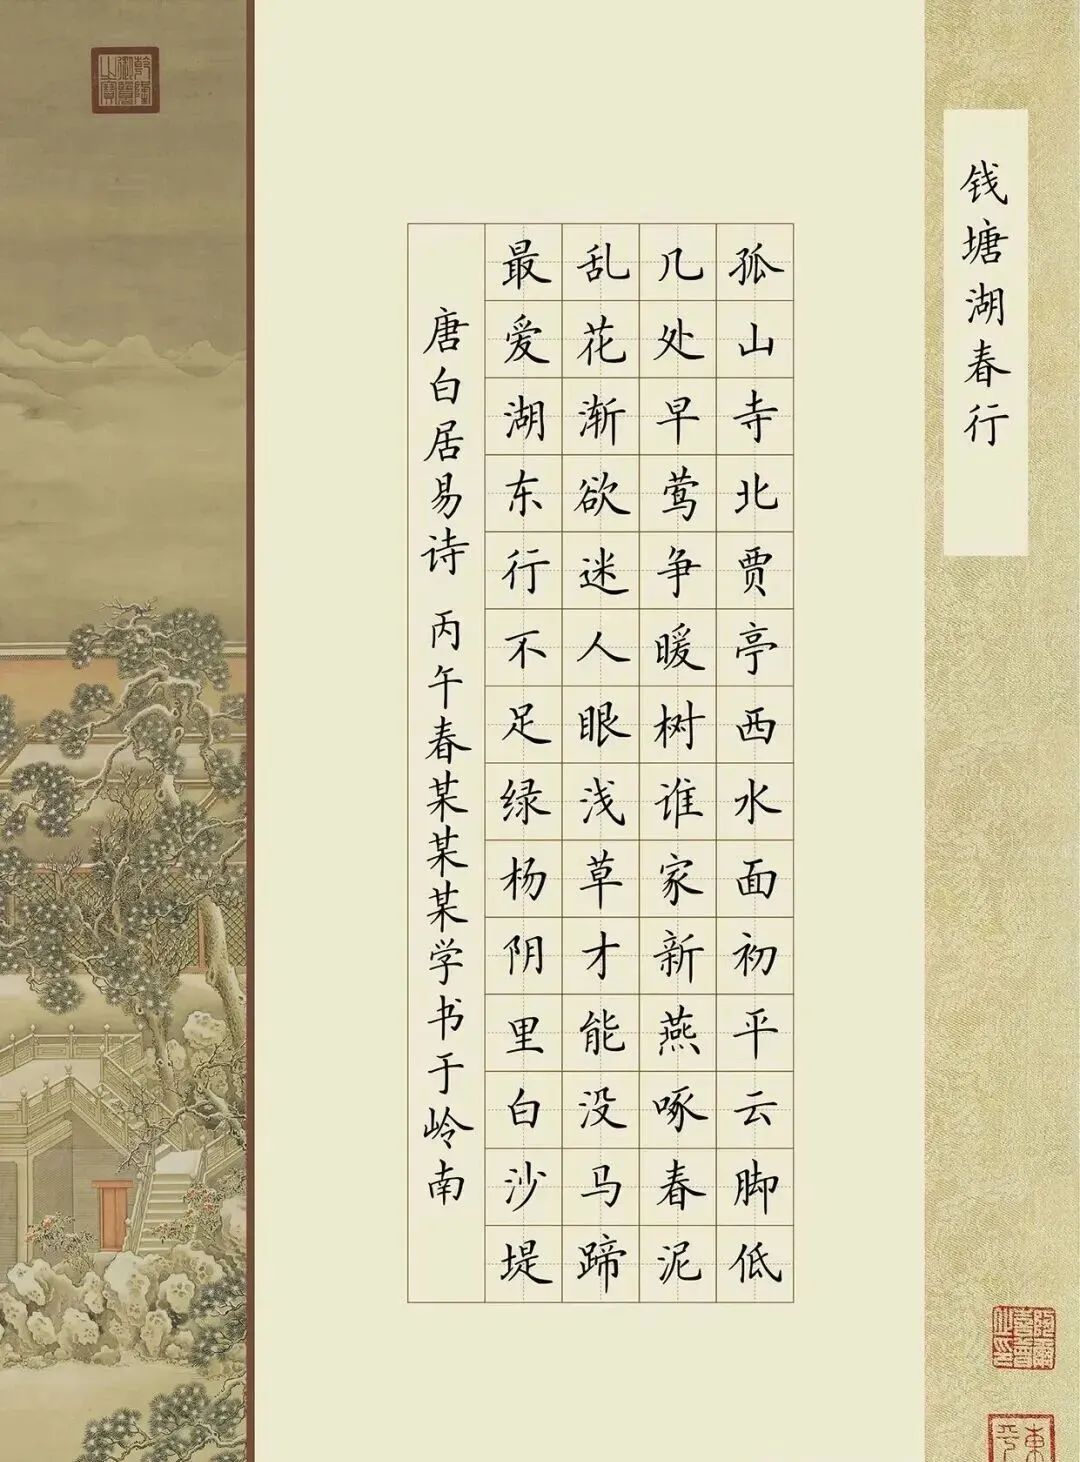 钱塘湖春行
孤山寺北贾亭西水面初平云脚低
几处早莺争暖树谁家新燕啄春泥
乱花渐欲迷人眼浅草才能没马蹄
最爱湖东行不足绿杨阴里白沙堤
唐白居易诗 丙午春某某某学书于岭南
乾隆御览之宝